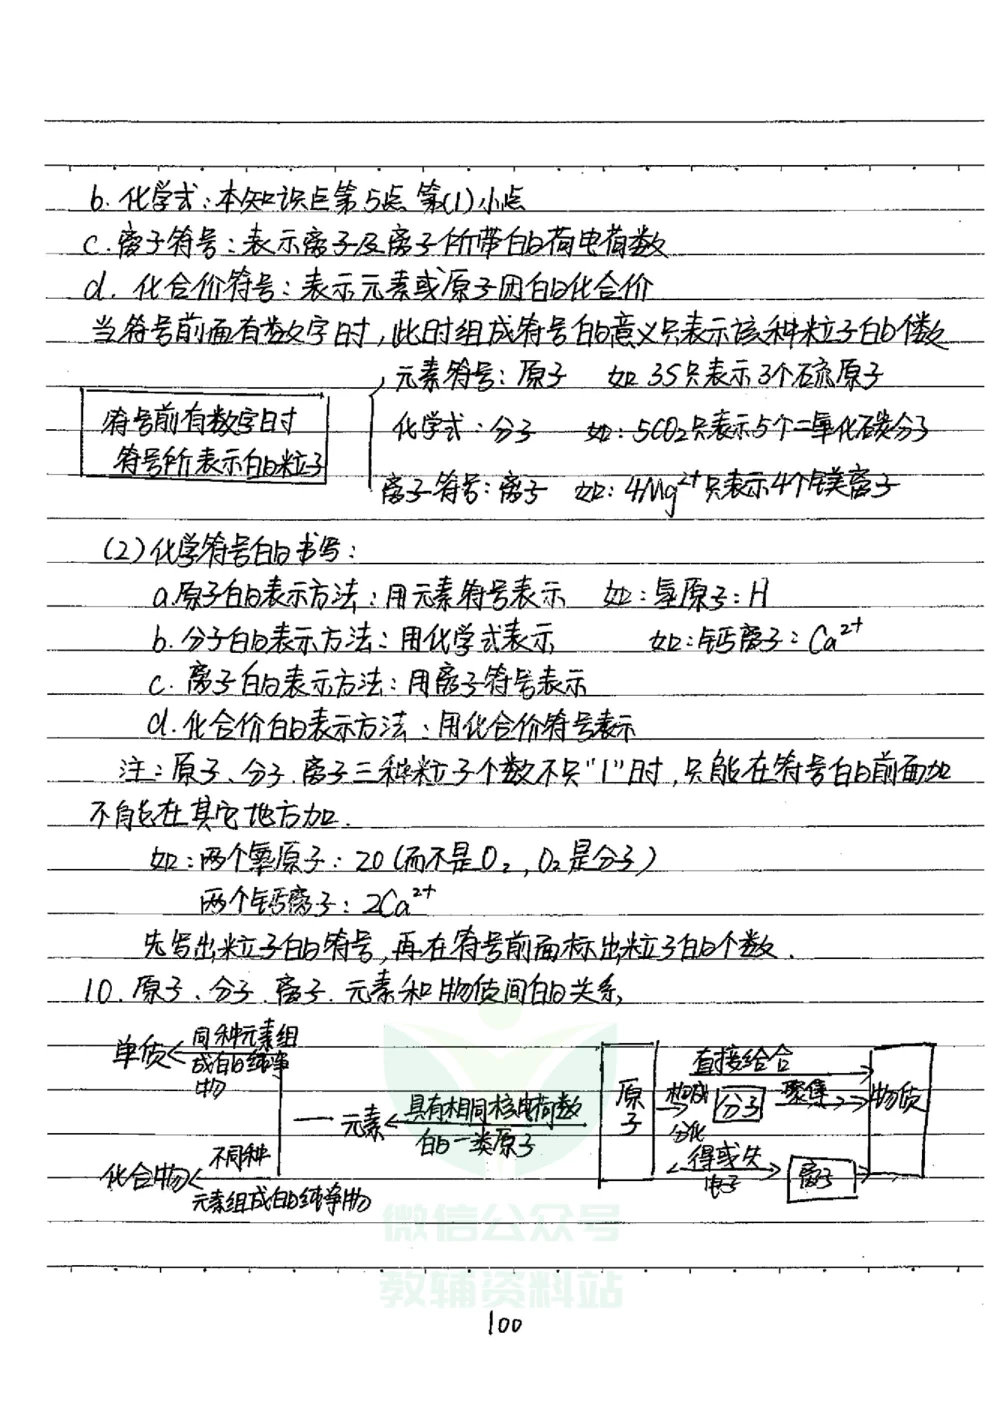 b. 化学式：本知识点第5点 第(1)小点
c. 离子符号：表示离子及离子所带的荷电荷数
d. 化合价符号：表示元素或原子团的化合价
当符号前面有数字时，此时组成符号的意义只表示该种粒子的个数
元素符号：原子 如 3S只表示3个硫原子
符号前有数字时
符号所表示的粒子
化学式：分子 如：5CO₂只表示5个二氧化碳分子
离子符号：离子 如：4Mg²⁺只表示4个镁离子
(2)化学符号的书写：
a.原子的表示方法：用元素符号表示 如：氢原子：H
b.分子的表示方法：用化学式表示 如：钙离子：Ca²⁺
c. 离子的表示方法：用离子符号表示
d.化合价的表示方法：用化合价符号表示
注：原子、分子.离子三种粒子个数不只“1”时，只能在符号的前面加
不能在其它地方加.
如：两个氧原子：2O（而不是O₂，O₂是分子）
两个钙离子：2Ca²⁺
先写出粒子的符号，再在符号前面标出粒子的个数.
10.原子、分子.离子.元素和物质间的关系
单质
同种元素组
成的纯净
物
化合物
不同种
元素组成的纯净物
元素
具有相同核电荷数
的一类原子
原子
直接结合
构成
分化
分子
聚集
得或失
电子
离子
物质
微信公众号
教辅资料站
100